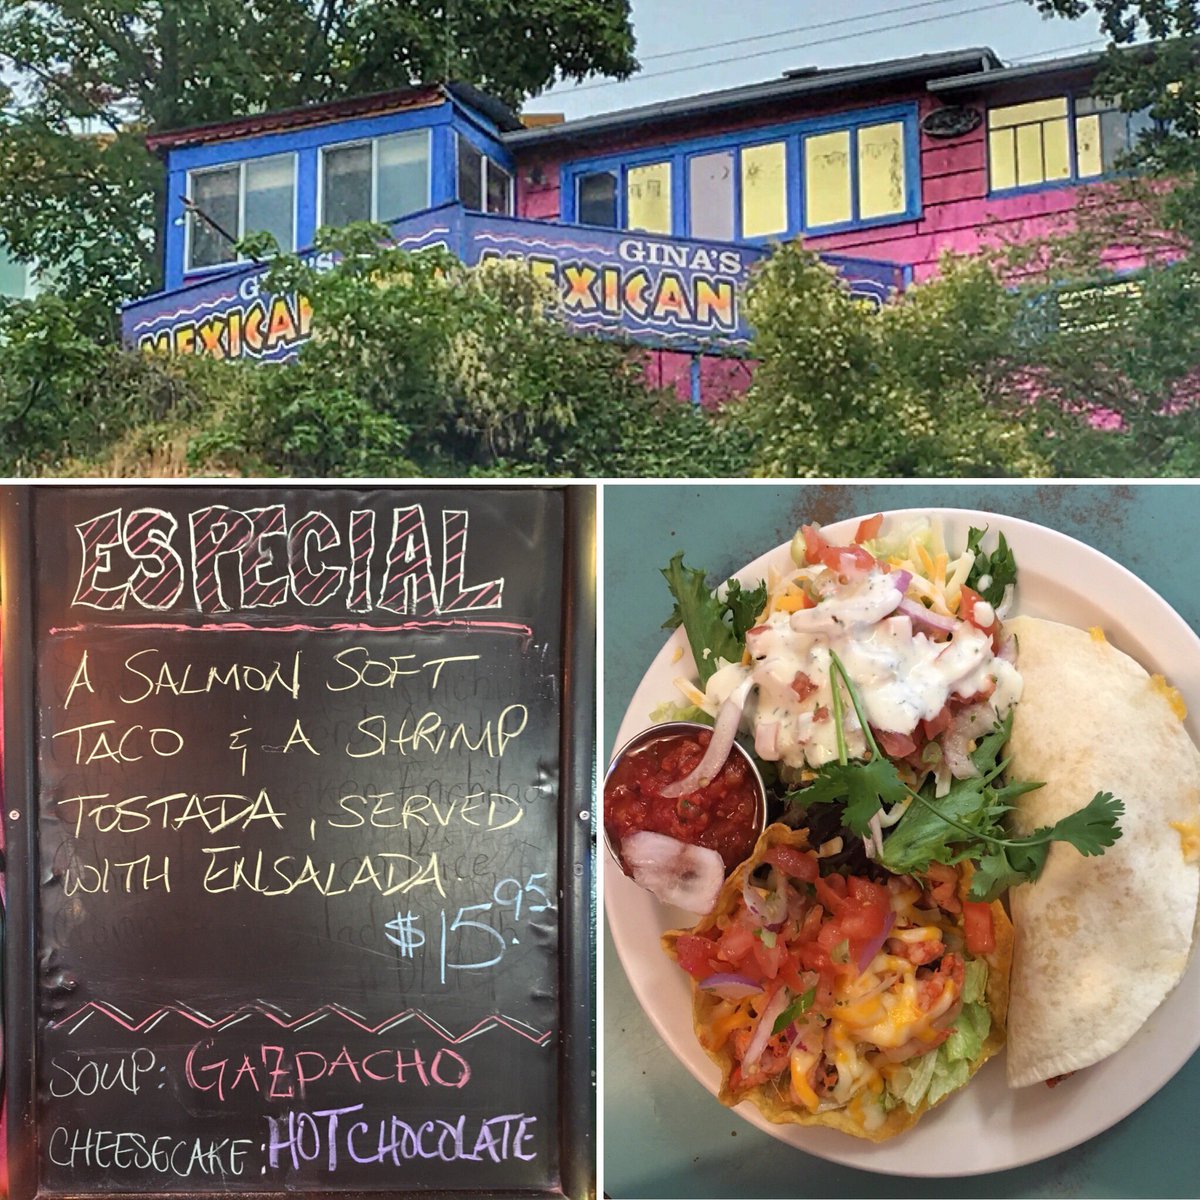 GINA'S
MEXICAN
MEXICAN
ESPECIAL
A SALMON SOFT
TACO & A SHRIMP
TOSTADA, SERVED
WITH ENSALADA
$15.95
SOUP: GAZPACHO
CHEESECAKE: HOT CHOCOLATE